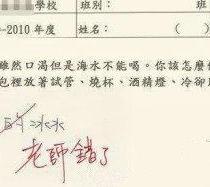 學校 班別：
-2010 年度 姓名： （ ）
雖然口渴但是海水不能喝。你該怎麼
包裡放著試管、燒杯、酒精燈、冷卻
冰水
老師錯了